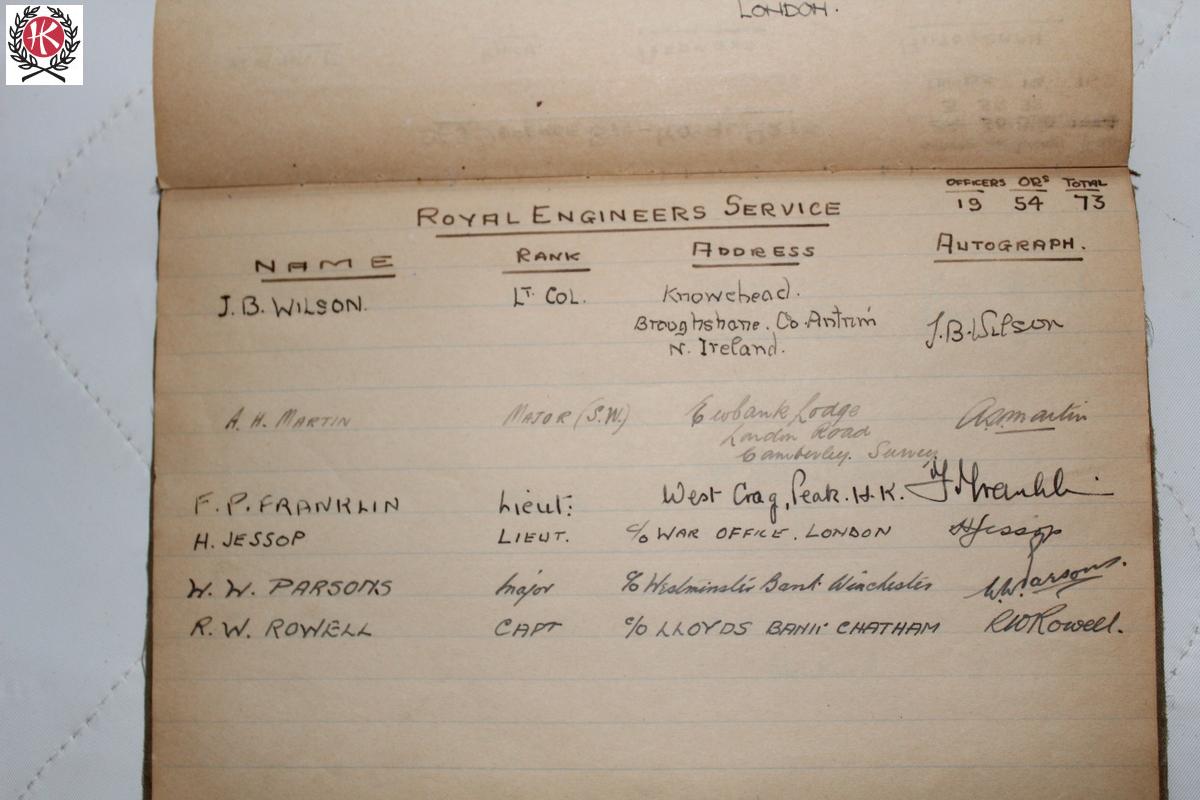 HK
LONDON.
OFFICERS ORS TOTAL
19 54 73
ROYAL ENGINEERS SERVICE
NAME RANK ADDRESS AUTOGRAPH.
J.B. WILSON. LT. COL. Knowehead.
Broughshane. Co. Antrim J.B. Wilson
N. Ireland.
A. H. MARTIN MAJOR (S.W.) Ewbank Lodge
London Road
Camberley. Surrey
F. P. FRANKLIN Lieut: West Crag, Peak. H.K.
H. JESSOP LIEUT. c/o WAR OFFICE. LONDON H Jessop
W. W. PARSONS Major c/o Westminster Bank Winchester W.W. Parsons.
R. W. ROWELL CAPT c/o LLOYDS BANK CHATHAM RW Rowell.